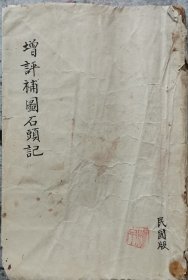 增評補圖石頭記
民國版